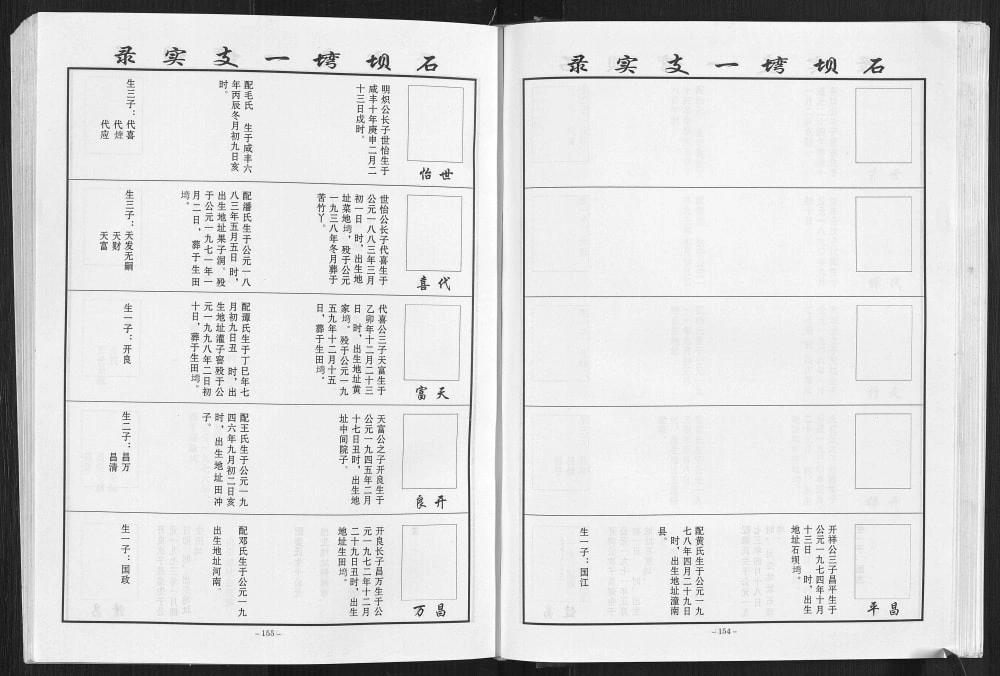 石坝塆一支实录
昌平
开祥公三子昌平生于
公元一九七四年十月
十三日　时，出生
地址石坝塆。
配黄氏生于公元一九
七八年四月二十九日
　时，出生地址潼南
县。
生一子：国江
－154－
石坝塆一支实录
世怡
明炽公长子世怡生于
咸丰十年庚申二月二
十三日戌时。
配毛氏　生于咸丰六
年丙辰冬月初九日亥
时。
生三子：代喜
代烓
代应
代喜
世怡公长子代喜生于
公元一八八三年三月
初一日　时，出生地
址菜地塆，殁于公元
一九三八年冬月葬于
苦竹丫。
配潘氏生于公元一八
八三年五月五日　时，
出生地址果子洞。殁
于公元一九七一年一
月二日，葬于生田
塆。
生三子：天发无嗣
天财
天富
天富
代喜公三子天富生于
乙卯年十二月二十三
日　时，出生地址黄
家塆。殁于公元一九
五九年十二月十五
日，葬于生田塆。
配谭氏生于丁巳年七
月初九日丑　时，出
生地址灌子窖殁于公
元一九九八年二日初
十日，葬于生田塆。
生一子：开良
开良
天富公之子开良生于
公元一九四五年二月
十七日丑时，出生地
址中间院子。
配王氏生于公元一九
四六年九月初二日亥
时，出生地址田冲
子。
生二子：昌万
昌清
昌万
开良长子昌万生于公
元一九七二年十二月
二十九日丑时，出生
地址生田塆。
配邓氏生于公元一九
出生地址河南。
生一子：国政
－155－